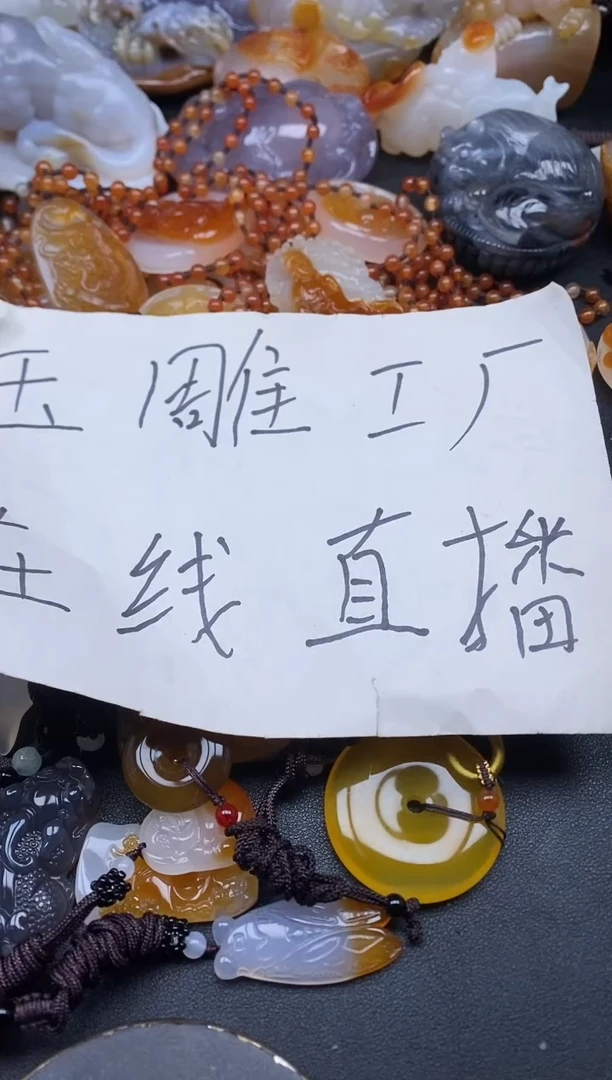 玉雕工厂
在线直播